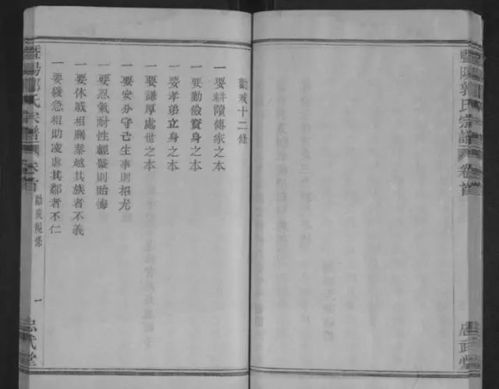 暨陽郭氏宗譜
卷首
忠武堂
勸戒十二條
一要耕讀傳家之本
一要勤儉資身之本
一要孝弟立身之本
一要謙厚處世之本
一要安分守己生事則招尤
一要忍氣耐性輕躁則貽悔
一要休戚相關秦越其族者不義
一要緩急相助凌虐其鄰者不仁
暨陽郭氏宗譜
卷首
一
忠武堂